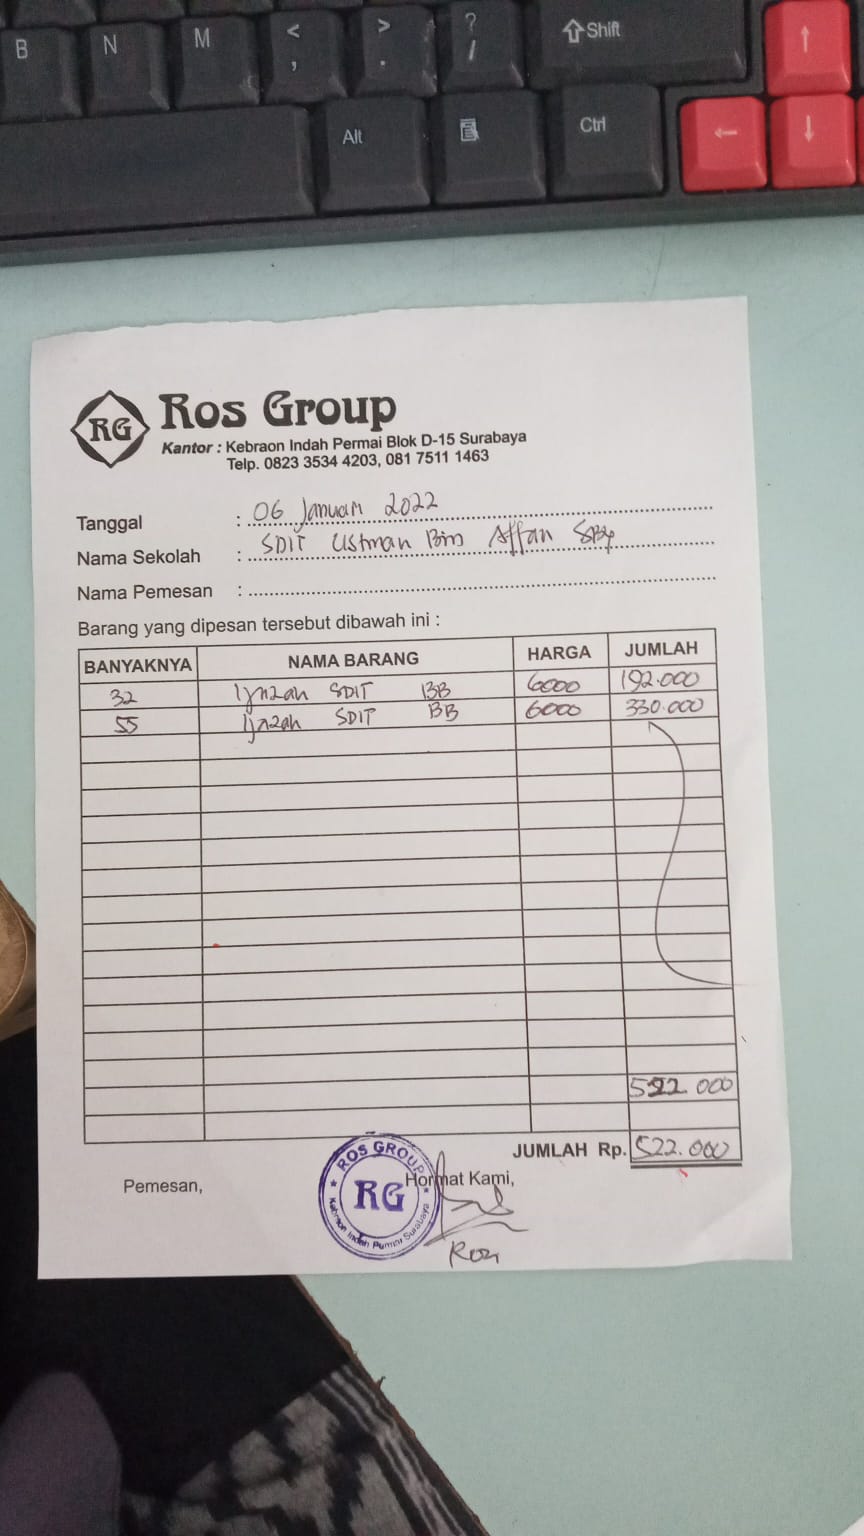 B N M < , > . ? / Shift ↑
Alt Ctrl ← ↓
RG Ros Group
Kantor : Kebraon Indah Permai Blok D-15 Surabaya
Telp. 0823 3534 4203, 081 7511 1463
Tanggal : 06 Januari 2022
Nama Sekolah : SDIT Ustman Bin Affan SBY
Nama Pemesan :
Barang yang dipesan tersebut dibawah ini :
BANYAKNYA NAMA BARANG HARGA JUMLAH
32 Ijazah SDIT BB 6000 192.000
55 Ijazah SDIT BB 6000 330.000
522.000
JUMLAH Rp. 522.000
Pemesan, Hormat Kami,
ROS GROUP
RG
Kebraon Indah Permai Surabaya